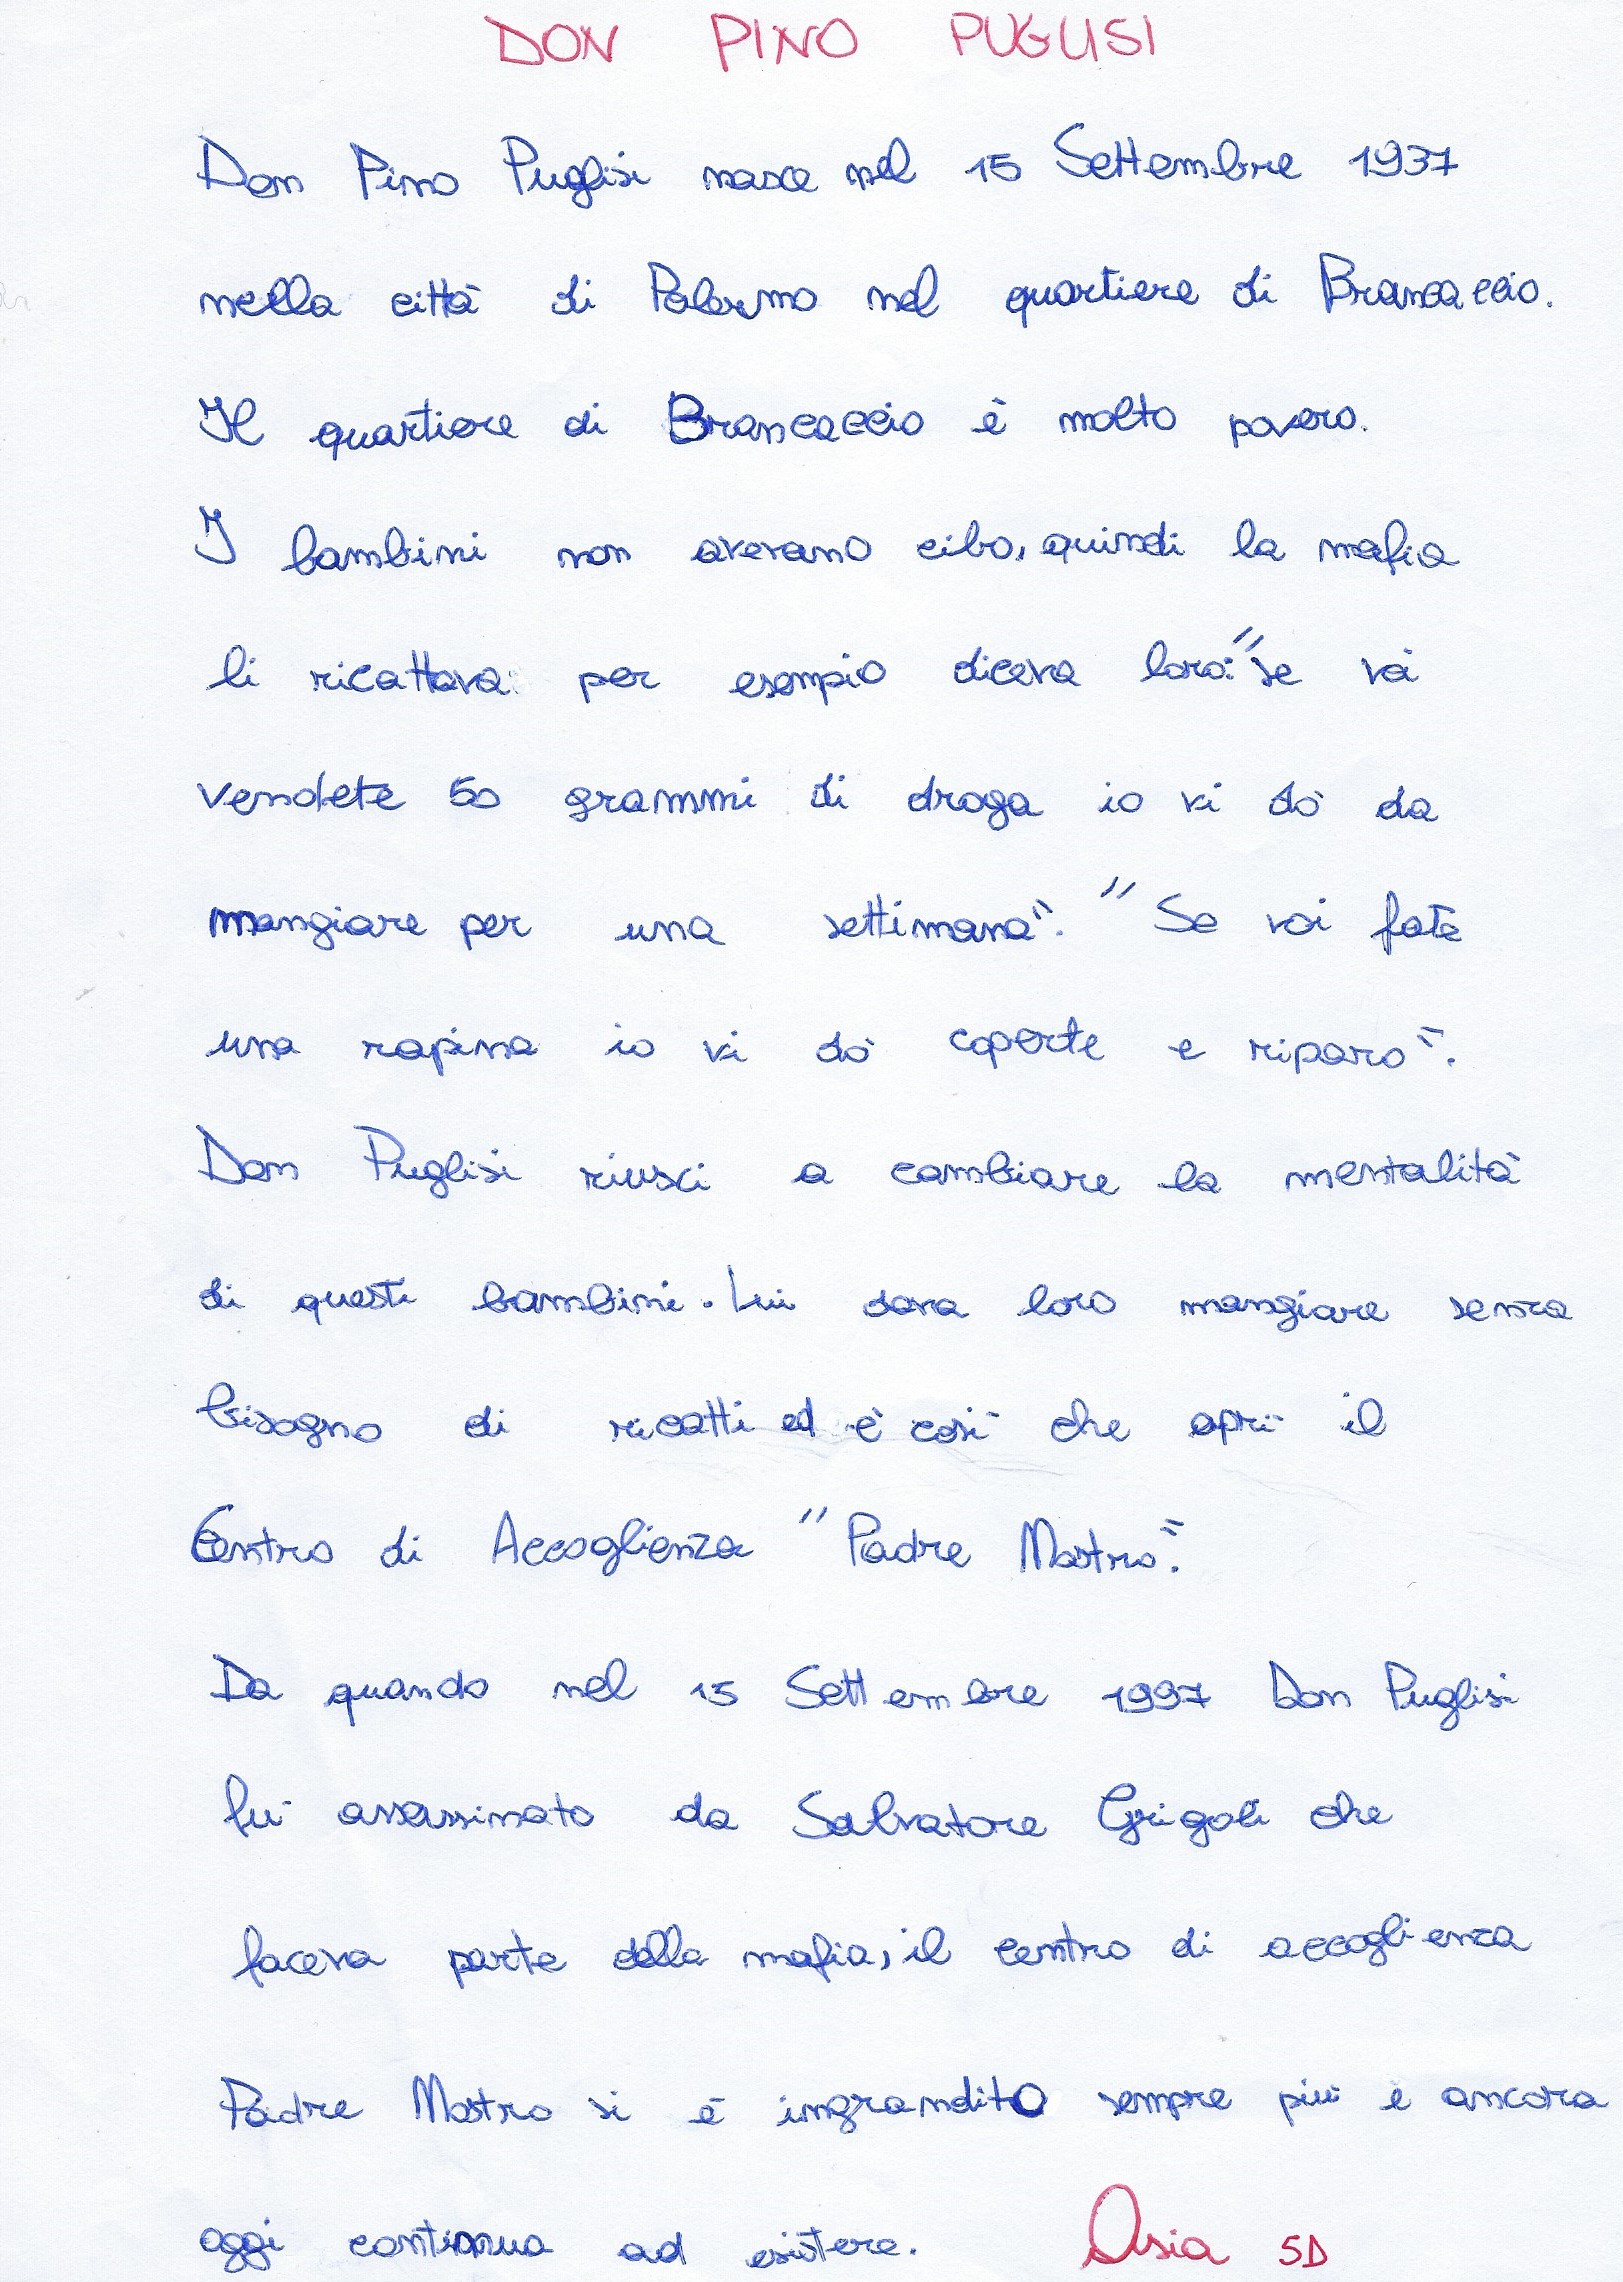 DON PINO PUGLISI
Don Pino Puglisi nasce nel 15 Settembre 1937
nella città di Palermo nel quartiere di Brancaccio.
Il quartiere di Brancaccio è molto povero.
I bambini non avevano cibo, quindi la mafia
li ricattava: per esempio diceva loro: "se voi
vendete 50 grammi di droga io vi dò da
mangiare per una settimana". "Se voi fate
una rapina io vi dò coperte e riparo".
Don Puglisi riusci a cambiare la mentalità
di questi bambini. Lui dava loro mangiare senza
bisogno di ricatti ed è così che aprì il
Centro di Accoglienza "Padre Mostro".
Da quando nel 15 Settembre 1997 Don Puglisi
fu assassinato da Salvatore Grigoli che
faceva parte della mafia, il centro di accoglienza
Padre Mostro si è ingrandito sempre più e ancora
oggi continua ad esistere. Asia 5D